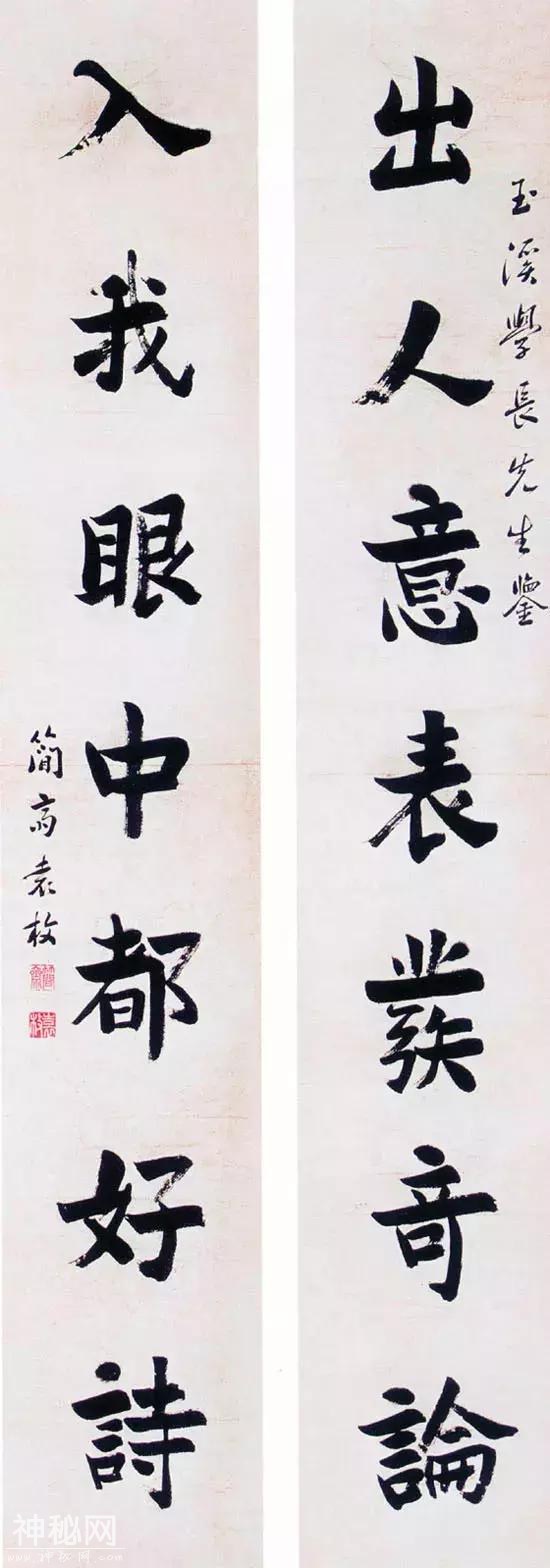 玉溪學長先生鑒
出人意表發竒論
入我眼中都好詩
簡齋袁枚
簡齋
袁枚
神秘网